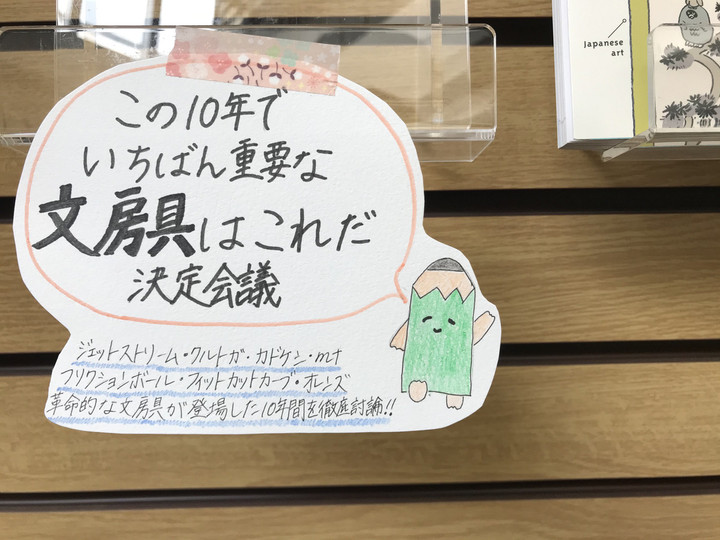 この10年で
いちばん重要な
文房具はこれだ
決定会議
ジェットストリーム・クルトガ・カドケシ・mt
フリクションボール・フィットカットカーブ・オレンズ
革命的な文房具が登場した10年間を徹底討論!!
Japanese
art